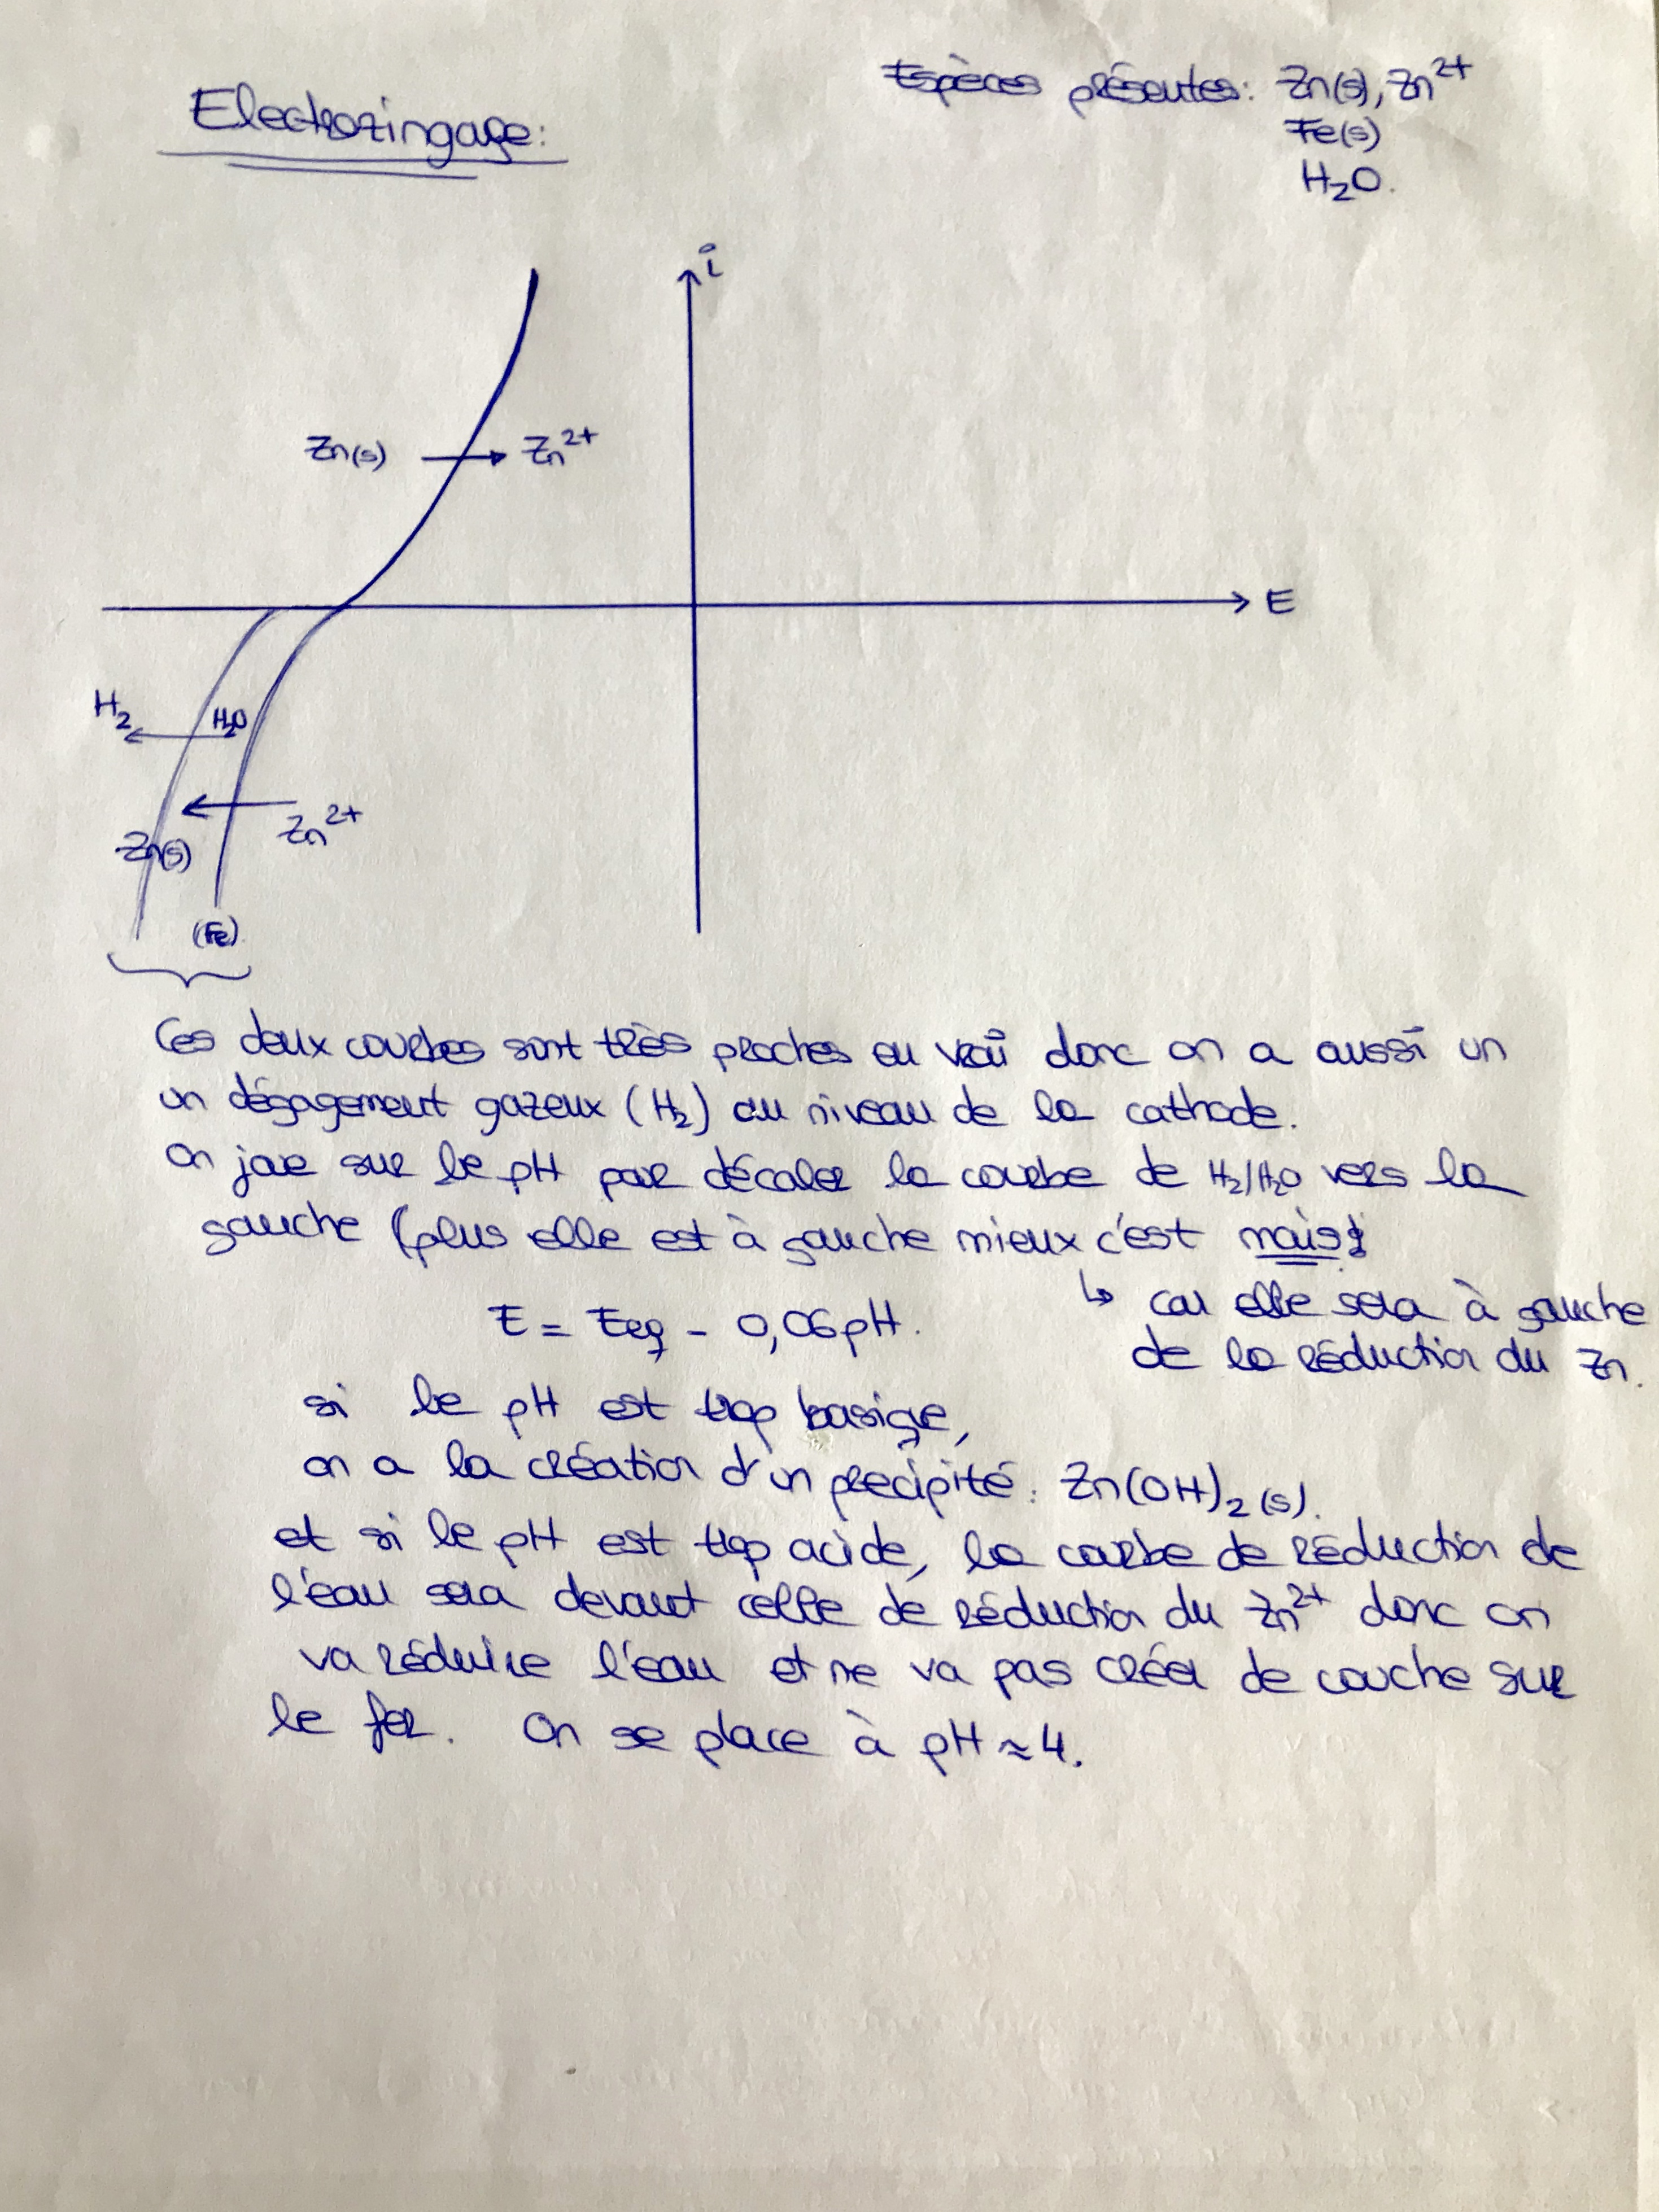 Electrozingage:
Espèces présentes: Zn(s), Zn²⁺
Fe(s)
H₂O.
i
Zn(s) → Zn²⁺
E
H₂ ← H₂O
Zn(s) ← Zn²⁺
(Fe)
Ces deux courbes sont très proches en vrai donc on a aussi un
un dégagement gazeux (H₂) au niveau de la cathode.
On joue sur le pH pour décaler la courbe de H₂/H₂O vers la
gauche (plus elle est à gauche mieux c'est mais!
↳ car elle sera à gauche
de la réduction du Zn.
E = Eeq - 0,06pH.
si le pH est trop basique,
on a la création d'un precipité: Zn(OH)₂(s).
et si le pH est trop acide, la courbe de réduction de
l'eau sera devant celle de réduction du Zn²⁺ donc on
va réduire l'eau et ne va pas créer de couche sur
le fer. On se place à pH ≈ 4.